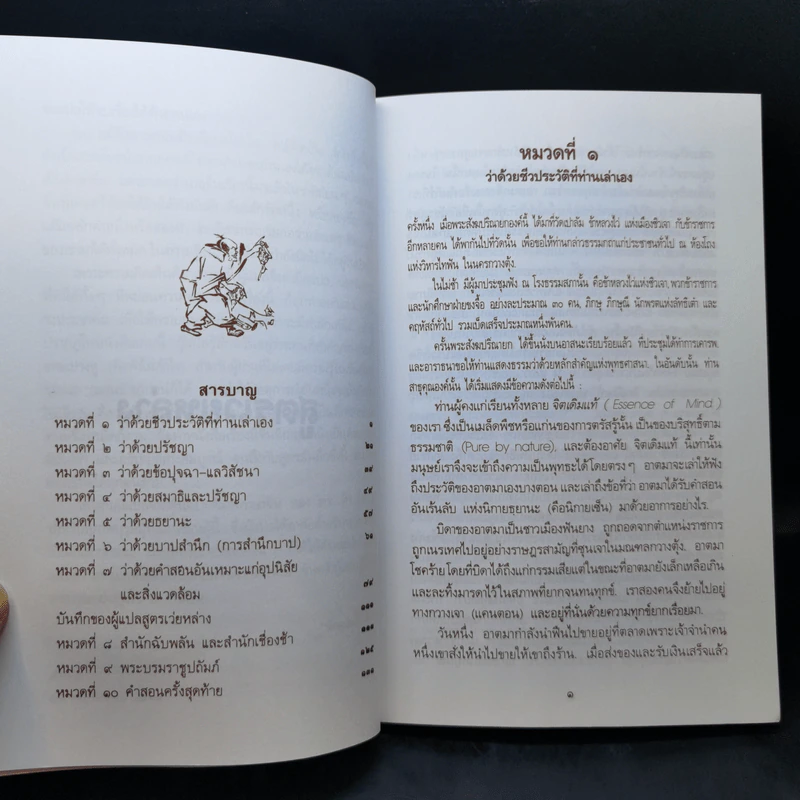 สารบาญ
หมวดที่ ๑ ว่าด้วยชีวประวัติที่ท่านเล่าเอง ๑
หมวดที่ ๒ ว่าด้วยปรัชญา ๒๑
หมวดที่ ๓ ว่าด้วยข้อปุจฉา-แลวิสัชนา ๓๔
หมวดที่ ๔ ว่าด้วยสมาธิและปรัชญา ๔๙
หมวดที่ ๕ ว่าด้วยธยานะ ๕๗
หมวดที่ ๖ ว่าด้วยบาปสำนึก (การสำนึกบาป) ๖๑
หมวดที่ ๗ ว่าด้วยคำสอนอันเหมาะแก่อุปนิสัย
และสิ่งแวดล้อม ๗๙
บันทึกของผู้แปลสูตรเว่ยหล่าง ๑๑๑
หมวดที่ ๘ สำนักฉับพลัน และสำนักเชื่องช้า
หมวดที่ ๙ พระบรมราชูปถัมภ์
หมวดที่ ๑๐ คำสอนครั้งสุดท้าย
หมวดที่ ๑
ว่าด้วยชีวประวัติที่ท่านเล่าเอง
ครั้งหนึ่ง เมื่อพระสังฆปริณายกองค์นี้ ได้มาที่วัดเปาลัม ข้าหลวงไว่ แห่งเมืองชิวเจา กับข้าราชการ
อีกหลายคน ได้พากันไปที่วัดนั้น เพื่อขอให้ท่านกล่าวธรรมกถาแก่ประชาชนทั่วไป ณ ห้องโถง
แห่งวิหารไทฟัน ในนครกวางตุ้ง
ในไม่ช้า มีผู้มาประชุมฟัง ณ โรงธรรมสภานั้น คือข้าหลวงไว่แห่งชิวเจา, พวกข้าราชการ
และนักศึกษาฝ่ายขงจื้อ อย่างละประมาณ ๓๐ คน, ภิกษุ ภิกษุณี นักพรตแห่งลัทธิเต๋า และ
คฤหัสถ์ทั่วไป รวมเบ็ดเสร็จประมาณหนึ่งพันคน.
ครั้นพระสังฆปริณายก ได้ขึ้นนั่งบนอาสนะเรียบร้อยแล้ว ที่ประชุมได้ทำการเคารพ,
และอาราธนาขอให้ท่านแสดงธรรมว่าด้วยหลักสำคัญแห่งพุทธศาสนา. ในอันดับนั้น ท่าน
สาธุคุณองค์นั้น ได้เริ่มแสดงมีข้อความดังต่อไปนี้ :
ท่านผู้คงแก่เรียนทั้งหลาย จิตเดิมแท้ (Essence of Mind)
ของเรา ซึ่งเป็นเมล็ดพืชหรือแก่นของการตรัสรู้นั้น เป็นของบริสุทธิ์ตาม
ธรรมชาติ (Pure by nature), และต้องอาศัย จิตเดิมแท้ นี้เท่านั้น
มนุษย์เราจึงจะเข้าถึงความเป็นพุทธะได้โดยตรงๆ อาตมาจะเล่าให้ฟัง
ถึงประวัติของอาตมาเองบางตอน และเล่าถึงข้อที่ว่า อาตมาได้รับคำสอน
อันเร้นลับ แห่งนิกายธยานะ (คือนิกายเซ็น) มาด้วยอาการอย่างไร.
บิดาของอาตมาเป็นชาวเมืองฟันยาง ถูกถอดจากตำแหน่งราชการ
ถูกเนรเทศไปอยู่อย่างราษฎรสามัญที่ซุนเจาในมณฑลกวางตุ้ง. อาตมา
โชคร้าย โดยที่บิดาได้ถึงแก่กรรมเสียแต่ในขณะที่อาตมายังเล็กเหลือเกิน
และละทิ้งมารดาไว้ในสภาพที่ยากจนทนทุกข์. เราสองคนจึงย้ายไปอยู่
ทางกวางเจา (แคนตอน) และอยู่ที่นั่นด้วยความทุกข์ยากเรื่อยมา.
วันหนึ่ง อาตมากำลังนำฟืนไปขายอยู่ที่ตลาดเพราะเจ้าจำนำคน
หนึ่งเขาสั่งให้นำไปขายให้เขาถึงร้าน. เมื่อส่งของและรับเงินเสร็จแล้ว
๑